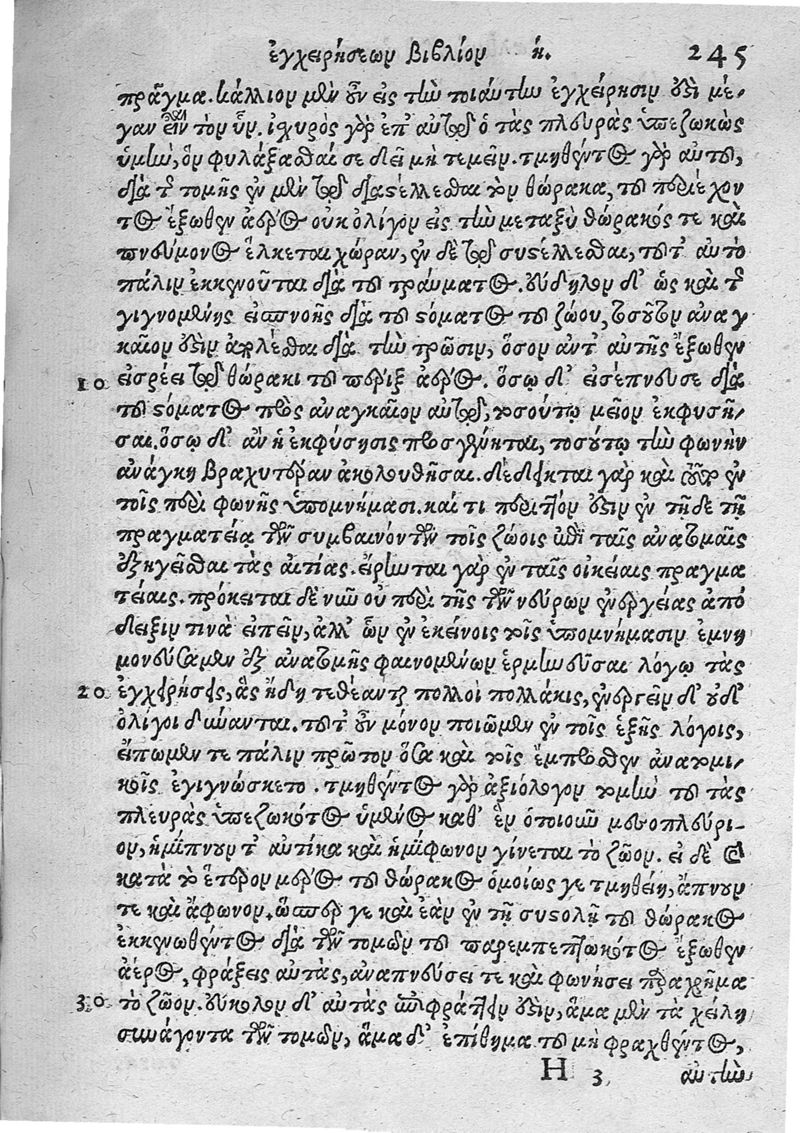 ἐγχειρήσεων βιβλίον η. 245
πρᾶγμα. κάλλιον μὲν οὖν εἰς τὴν τοιαύτην ἐγχείρησιν ὅτι μέ-
γαν εἶναι τὸν ὗν. ἰσχυρὸς γὰρ ἐπ' αὐτοῦ ὁ τὰς πλευρὰς ὑπεζωκὼς
ὑμὴν, ὃν φυλάξασθαί σε δεῖ μὴ τεμεῖν. τμηθέντος γὰρ αὐτοῦ,
διὰ τῆς τομῆς ἐν μὲν τῷ διαστέλλεσθαι τὸν θώρακα, τοῦ περιέχον
τος ἔξωθεν ἀέρος οὐκ ὀλίγον εἰς τὴν μεταξὺ θώρακός τε καὶ
πνεύμονος ἕλκεται χώραν, ἐν δὲ τῷ συστέλλεσθαι, τοῦτ' αὐτὸ
πάλιν ἐκκενοῦται διὰ τοῦ τραύματος. εὔδηλον δ' ὡς καὶ τῆς
γιγνομένης εἰσπνοῆς διὰ τοῦ στόματος τοῦ ζώου, τοσοῦτον ἀναγ
καῖόν ἐστιν ἀπολέσθαι διὰ τὴν τρῶσιν, ὅσον ἀντ' αὐτῆς ἔξωθεν
10 εἰσρέει τῷ θώρακι τοῦ πέριξ ἀέρος. ὅσῳ δ' εἰσέπνευσε διὰ
τοῦ στόματος πρὸς ἀναγκαῖον αὐτῷ, τοσούτῳ μεῖον ἐκφυσῆ-
σαι. ὅσῳ δ' ἂν ἡ ἐκφύσησις προσγένηται, τοσούτῳ τὴν φωνὴν
ἀνάγκη βραχυτέραν ἀκολουθῆσαι. δέδεικται γὰρ καὶ τοῦτο ἐν
τοῖς περὶ φωνῆς ὑπομνήμασι. καί τι περιττόν ἐστιν ἐν τῇδε τῇ
πραγματείᾳ τῶν συμβαινόντων τοῖς ζώοις ἐπὶ ταῖς ἀνατομαῖς
ἐξηγεῖσθαι τὰς αἰτίας. εἴρηνται γὰρ ἐν ταῖς οἰκείαις πραγμα
τείαις. πρόκειται δὲ νῦν οὐ περὶ τῆς τῶν νεύρων ἐνεργείας ἀπό
δειξίν τινὰ εἰπεῖν, ἀλλ' ὧν ἐν ἐκείνοις τοῖς ὑπομνήμασιν ἐμνη
μονεύσαμεν ἐξ ἀνατομῆς φαινομένων ἑρμηνεῦσαι λόγῳ τὰς
20 ἐγχειρήσεις, ἃς ἤδη τεθέανται πολλοὶ πολλάκις, ἐνεργεῖν δ' οὐδ'
ὀλίγοι δύνανται. τοῦτ' οὖν μόνον ποιῶμεν ἐν τοῖς ἑξῆς λόγοις,
εἴπωμέν τε πάλιν πρῶτον ὅσα καὶ τοῖς ἔμπροσθεν ἀνατομι-
κοῖς ἐγιγνώσκετο. τμηθέντος γὰρ ἀξιόλογον τομὴν τοῦ τὰς
πλευρὰς ὑπεζωκότος ὑμένος καθ' ἓν ὁποιοῦν μεσοπλεύρι-
ον, ἡμίπνουν τ' αὐτίκα καὶ ἡμίφωνον γίνεται τὸ ζῶον. εἰ δὲ καὶ
κατὰ τὸ ἕτερον μέρος τοῦ θώρακος ὁμοίως γε τμηθείη, ἄπνουν
τε καὶ ἄφωνον. ὥσπερ γε καὶ ἐὰν ἐν τῇ συστολῇ τοῦ θώρακος
ἐκκενωθέντος διὰ τῶν τομῶν τοῦ παρεμπεπτωκότος ἔξωθεν
ἀέρος, φράξεις αὐτὰς, ἀναπνεύσει τε καὶ φωνήσει παραχρῆμα
30 τὸ ζῶον. εὔκολον δ' αὐτὰς ἀποφράττειν ἐστὶν, ἅμα μὲν τὰ χείλη
συνάγοντα τῶν τομῶν, ἅμα δ' ἐπίθημα τοῦ μὴ φραχθέντος,
H 3 αὐτὴν